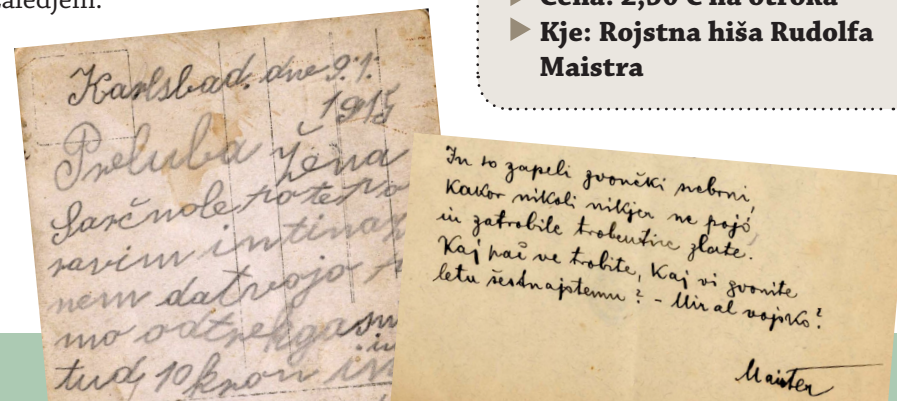 zaledjem.
Cena: 2,50 € na otroka
Kje: Rojstna hiša Rudolfa
Maistra
Karlsbad, dne 9.1.
1915
Preluba Žena
Sarčnole pote
ravim in tinaz
nem datvojo
mo odtrekga sm
tudj 10 kron in
In so zapeli zvončki srebrni,
kakor nikoli nikjer ne pojó,
in zatrobile trobentice zlate.
Kaj pač ve trobite, kaj vi zvonite
letu šestnajstemu? – Mir al vojsko?
Maister